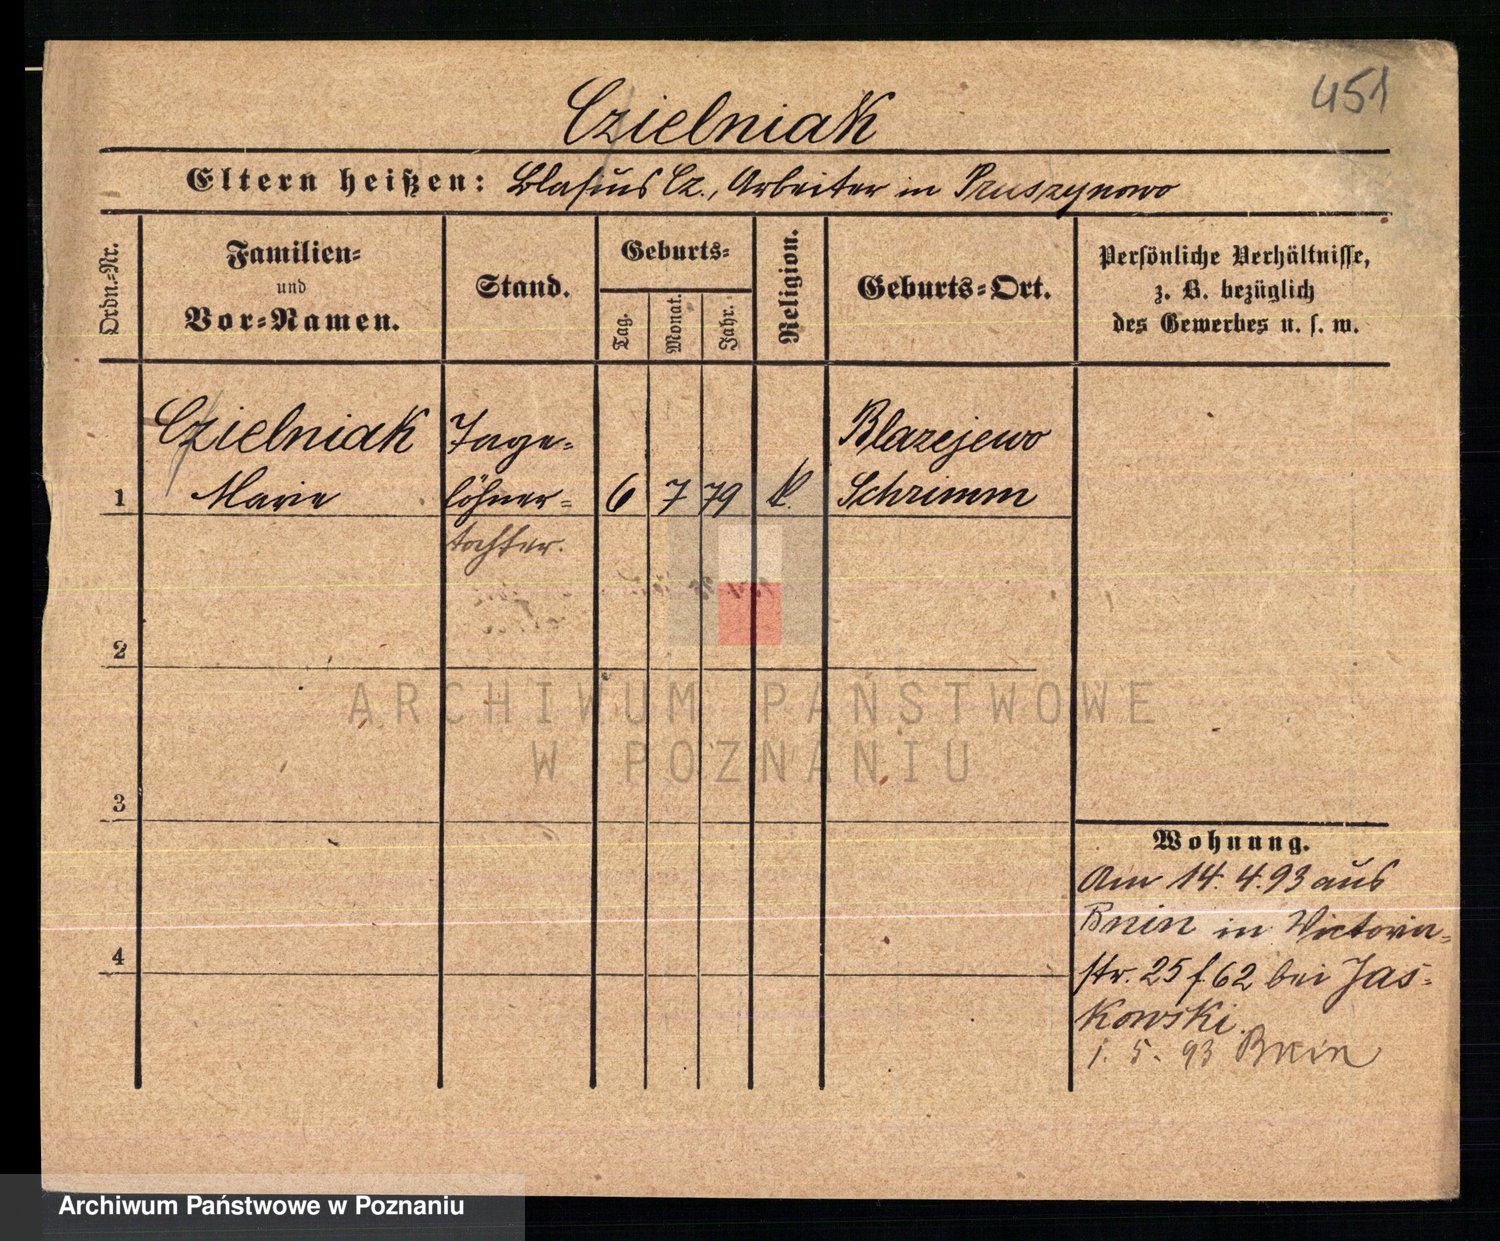 451
Czielniak
Eltern heißen: Blasius Cz., Arbeiter in Pruszynowo
Ordn.-Nr.
Familien-
und
Vor-Namen.
Stand.
Geburts-
Tag.
Monat.
Jahr.
Religion.
Geburts-Ort.
Persönliche Verhältnisse,
z. B. bezüglich
des Gewerbes u. s. w.
Czielniak Tage- Blazejewo
1 Marie löhner- 6 7 79 k. Schrimm
tochter.
2
ARCHIWUM PAŃSTWOWE
W POZNANIU
3
Wohnung.
Am 14. 4. 93 aus
Bnin in Victoria-
str. 25 f. 62 bei Jas-
kowski.
4
1. 5. 93 Bnin
Archiwum Państwowe w Poznaniu